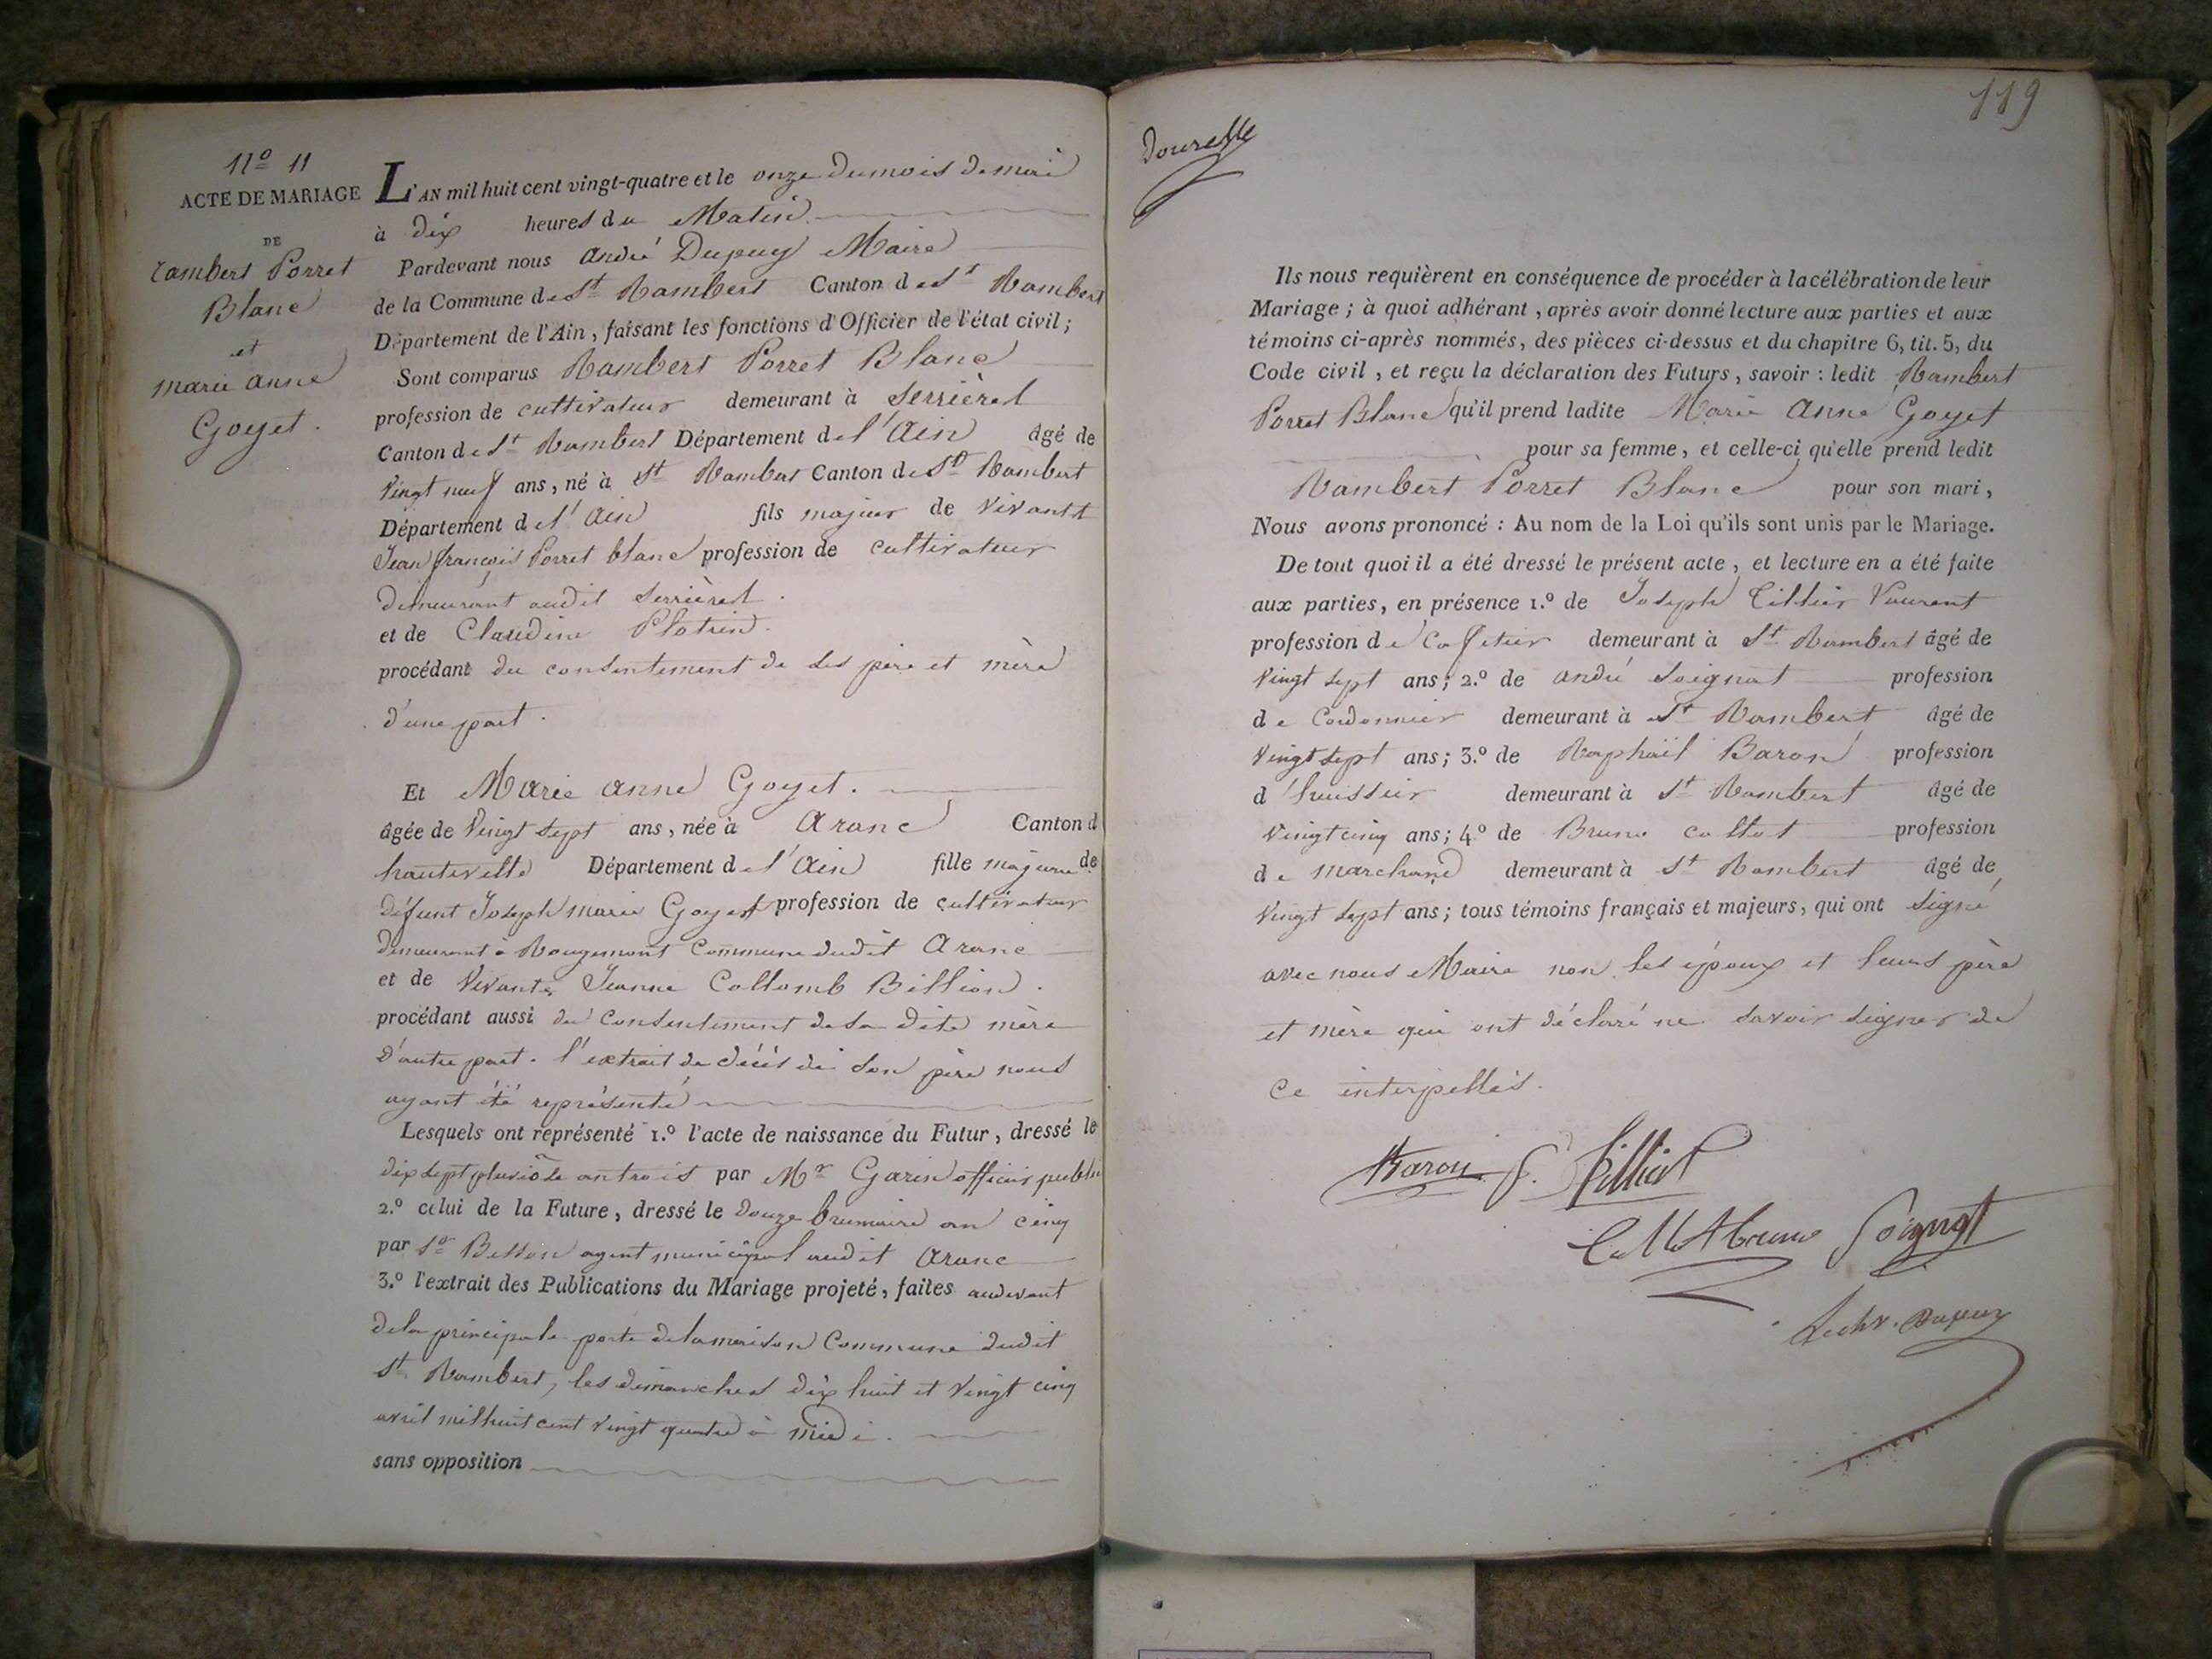 N.º 11
ACTE DE MARIAGE
DE
Rambert Porret
Blanc
et
marie anne
Goyet.
L'AN mil huit cent vingt-quatre et le onze du mois de mai
à dix heures du Matin
Pardevant nous andré Dupuy Maire
de la Commune de St Rambert Canton de St Rambert
Département de l'Ain, faisant les fonctions d'Officier de l'état civil;
Sont comparus Rambert Porret Blanc
profession de cultivateur demeurant à Serrières
Canton de St Rambert Département de l'Ain âgé de
vingt neuf ans, né à St Rambert Canton de St Rambert
Département de l'Ain fils majeur de vivants
Jean françois Porret blanc profession de cultivateur
demeurant audit Serrières.
et de Claudine Plotin.
procédant du consentement de ses père et mère
d'une part.
Et Marie anne Goyet.
âgée de vingt sept ans, née à Aranc Canton d
hauteville Département de l'Ain fille majeure de
défunt Joseph marie Goyet profession de cultivateur
demeurant à Rougemont Commune dudit Aranc
et de vivante Jeanne Collomb Billion.
procédant aussi du consentement de sa dite mère
D'autre part. l'extrait de décès de son père nous
ayant été représenté
Lesquels ont représenté 1.º l'acte de naissance du Futur, dressé le
dix sept pluviôse an trois par Mr Garin officier public
2.º celui de la Future, dressé le douze brumaire an cinq
par Sr agent municipal audit Aranc
3.º l'extrait des Publications du Mariage projeté, faites audevant
de la principale porte de la maison Commune dudit
St Rambert, les dimanches dix huit et vingt cinq
avril mil huit cent vingt quatre à midi.
sans opposition
119
Ils nous requièrent en conséquence de procéder à la célébration de leur
Mariage; à quoi adhérant, après avoir donné lecture aux parties et aux
témoins ci-après nommés, des pièces ci-dessus et du chapitre 6, tit. 5, du
Code civil, et reçu la déclaration des Futurs, savoir: ledit Rambert
Porret Blanc qu'il prend ladite Marie Anne Goyet
pour sa femme, et celle-ci qu'elle prend ledit
Rambert Porret Blanc pour son mari,
Nous avons prononcé: Au nom de la Loi qu'ils sont unis par le Mariage.
De tout quoi il a été dressé le présent acte, et lecture en a été faite
aux parties, en présence 1.º de Joseph
profession de Cafetier demeurant à St Rambert âgé de
vingt sept ans; 2.º de andré Soignat profession
de Cordonnier demeurant à St Rambert âgé de
vingt sept ans; 3.º de Raphaël Baron profession
d'huissier demeurant à St Rambert âgé de
vingt cinq ans; 4.º de Bruno Collot profession
de marchand demeurant à St Rambert âgé de
vingt sept ans; tous témoins français et majeurs, qui ont signé
avec nous Maire non les époux et leurs père
et mère qui ont déclaré ne savoir signer de
ce interpellés.
Baron
Collot bruno Soignat
Dupuy